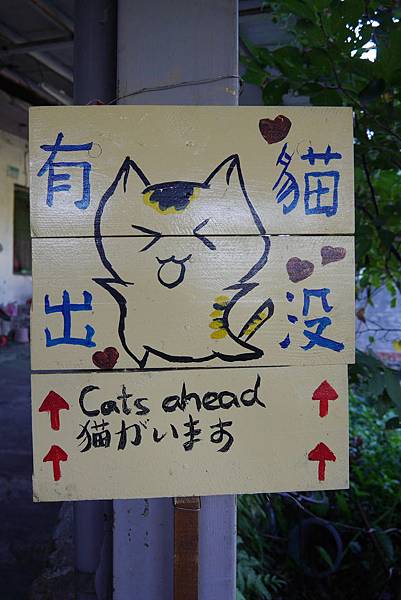 有貓
出没
Cats ahead
猫がいます